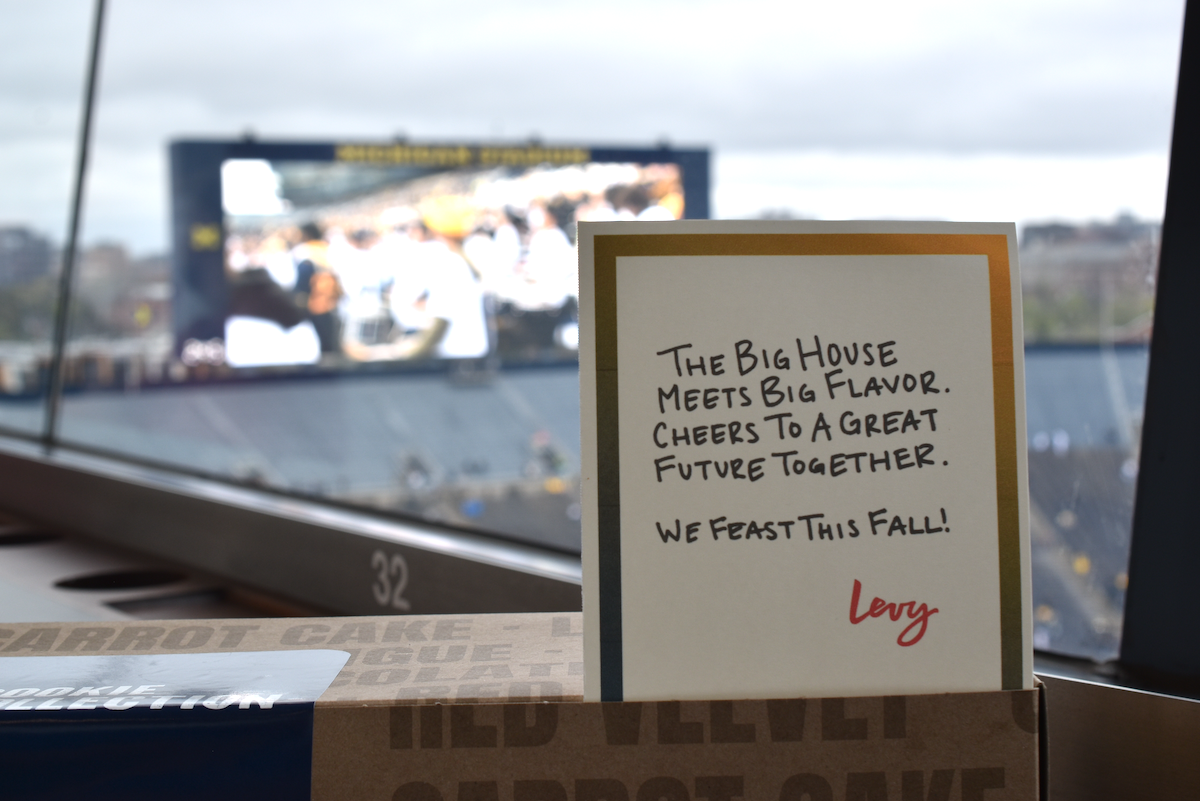 MICHIGAN STADIUM
THE BIG HOUSE
MEETS BIG FLAVOR.
CHEERS TO A GREAT
FUTURE TOGETHER.
WE FEAST THIS FALL!
Levy
32
CARROT CAKE - L
GUE -
OLATE
RED VELVET
COOKIE
COLLECTION
RED VELVET
CARROT CAKE